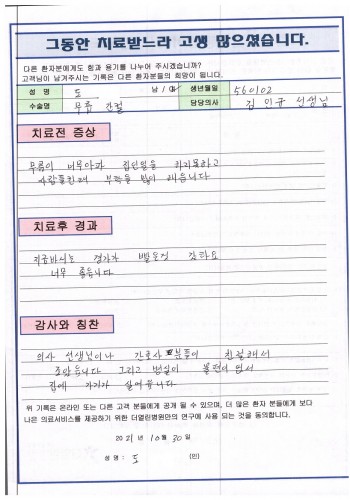 그동안 치료받느라 고생 많으셨습니다.
다른 환자분에게도 힘과 용기를 나누어 주시겠습니까?
고객님이 남겨주시는 기록은 다른 환자분들의 희망이 됩니다.
성 명 도 남 / 여 생년월일 560102
수술명 무릎 관절 담당의사 김 민규 선생님
치료전 증상
무릎이 너무아파 집안일을 하지못하고
사람들한테 부탁을 많이 해읍니다
치료후 경과
지금바서는 경과가 빨른것 갓타요
너무 좋읍니다
감사와 칭찬
의사 선생님이나 간호사 분들이 친절해서
조앗읍니다 그리고 병실이 불편이 업서
집에 가기가 실어읍니다
위 기록은 온라인 또는 다른 고객 분들에게 공개 될 수 있으며, 더 많은 환자 분들에게 보다
나은 의료서비스를 제공하기 위한 더열린병원만의 연구에 사용 되는 것을 동의합니다.
2021 년 10 월 30 일
성 명 : 도 (인)